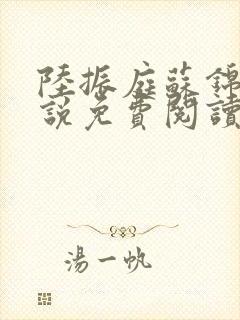 陸振庭蘇錦
說免費閱讀
湯一帆